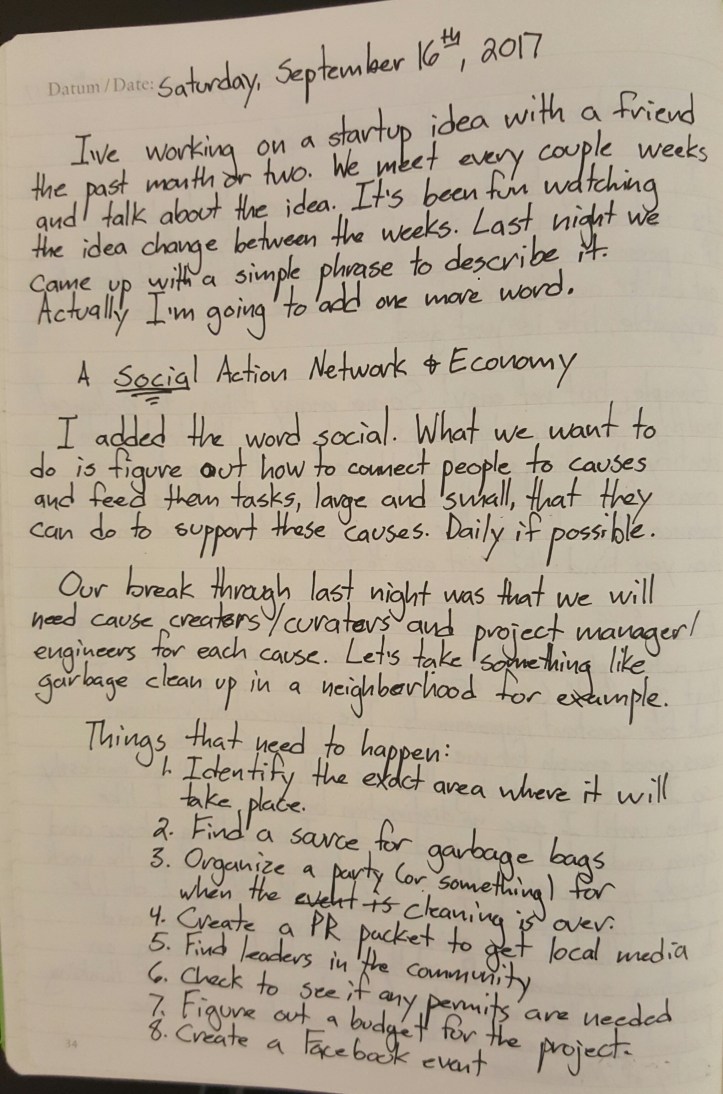 Datum / Date: Saturday, September 16th, 2017
I've working on a startup idea with a friend
the past month or two. We meet every couple weeks
and talk about the idea. It's been fun watching
the idea change between the weeks. Last night we
came up with a simple phrase to describe it.
Actually I'm going to add one more word.
A Social Action Network & Economy
I added the word social. What we want to
do is figure out how to connect people to causes
and feed them tasks, large and small, that they
can do to support these causes. Daily if possible.
Our break through last night was that we will
need cause creators/curators and project manager/
engineers for each cause. Let's take something like
garbage clean up in a neighborhood for example.
Things that need to happen:
1. Identify the exact area where it will
take place.
2. Find a source for garbage bags
3. Organize a party (or something) for
when the event is cleaning is over.
4. Create a PR packet to get local media
5. Find leaders in the community
6. Check to see if any permits are needed
7. Figure out a budget for the project.
8. Create a Facebook event
34